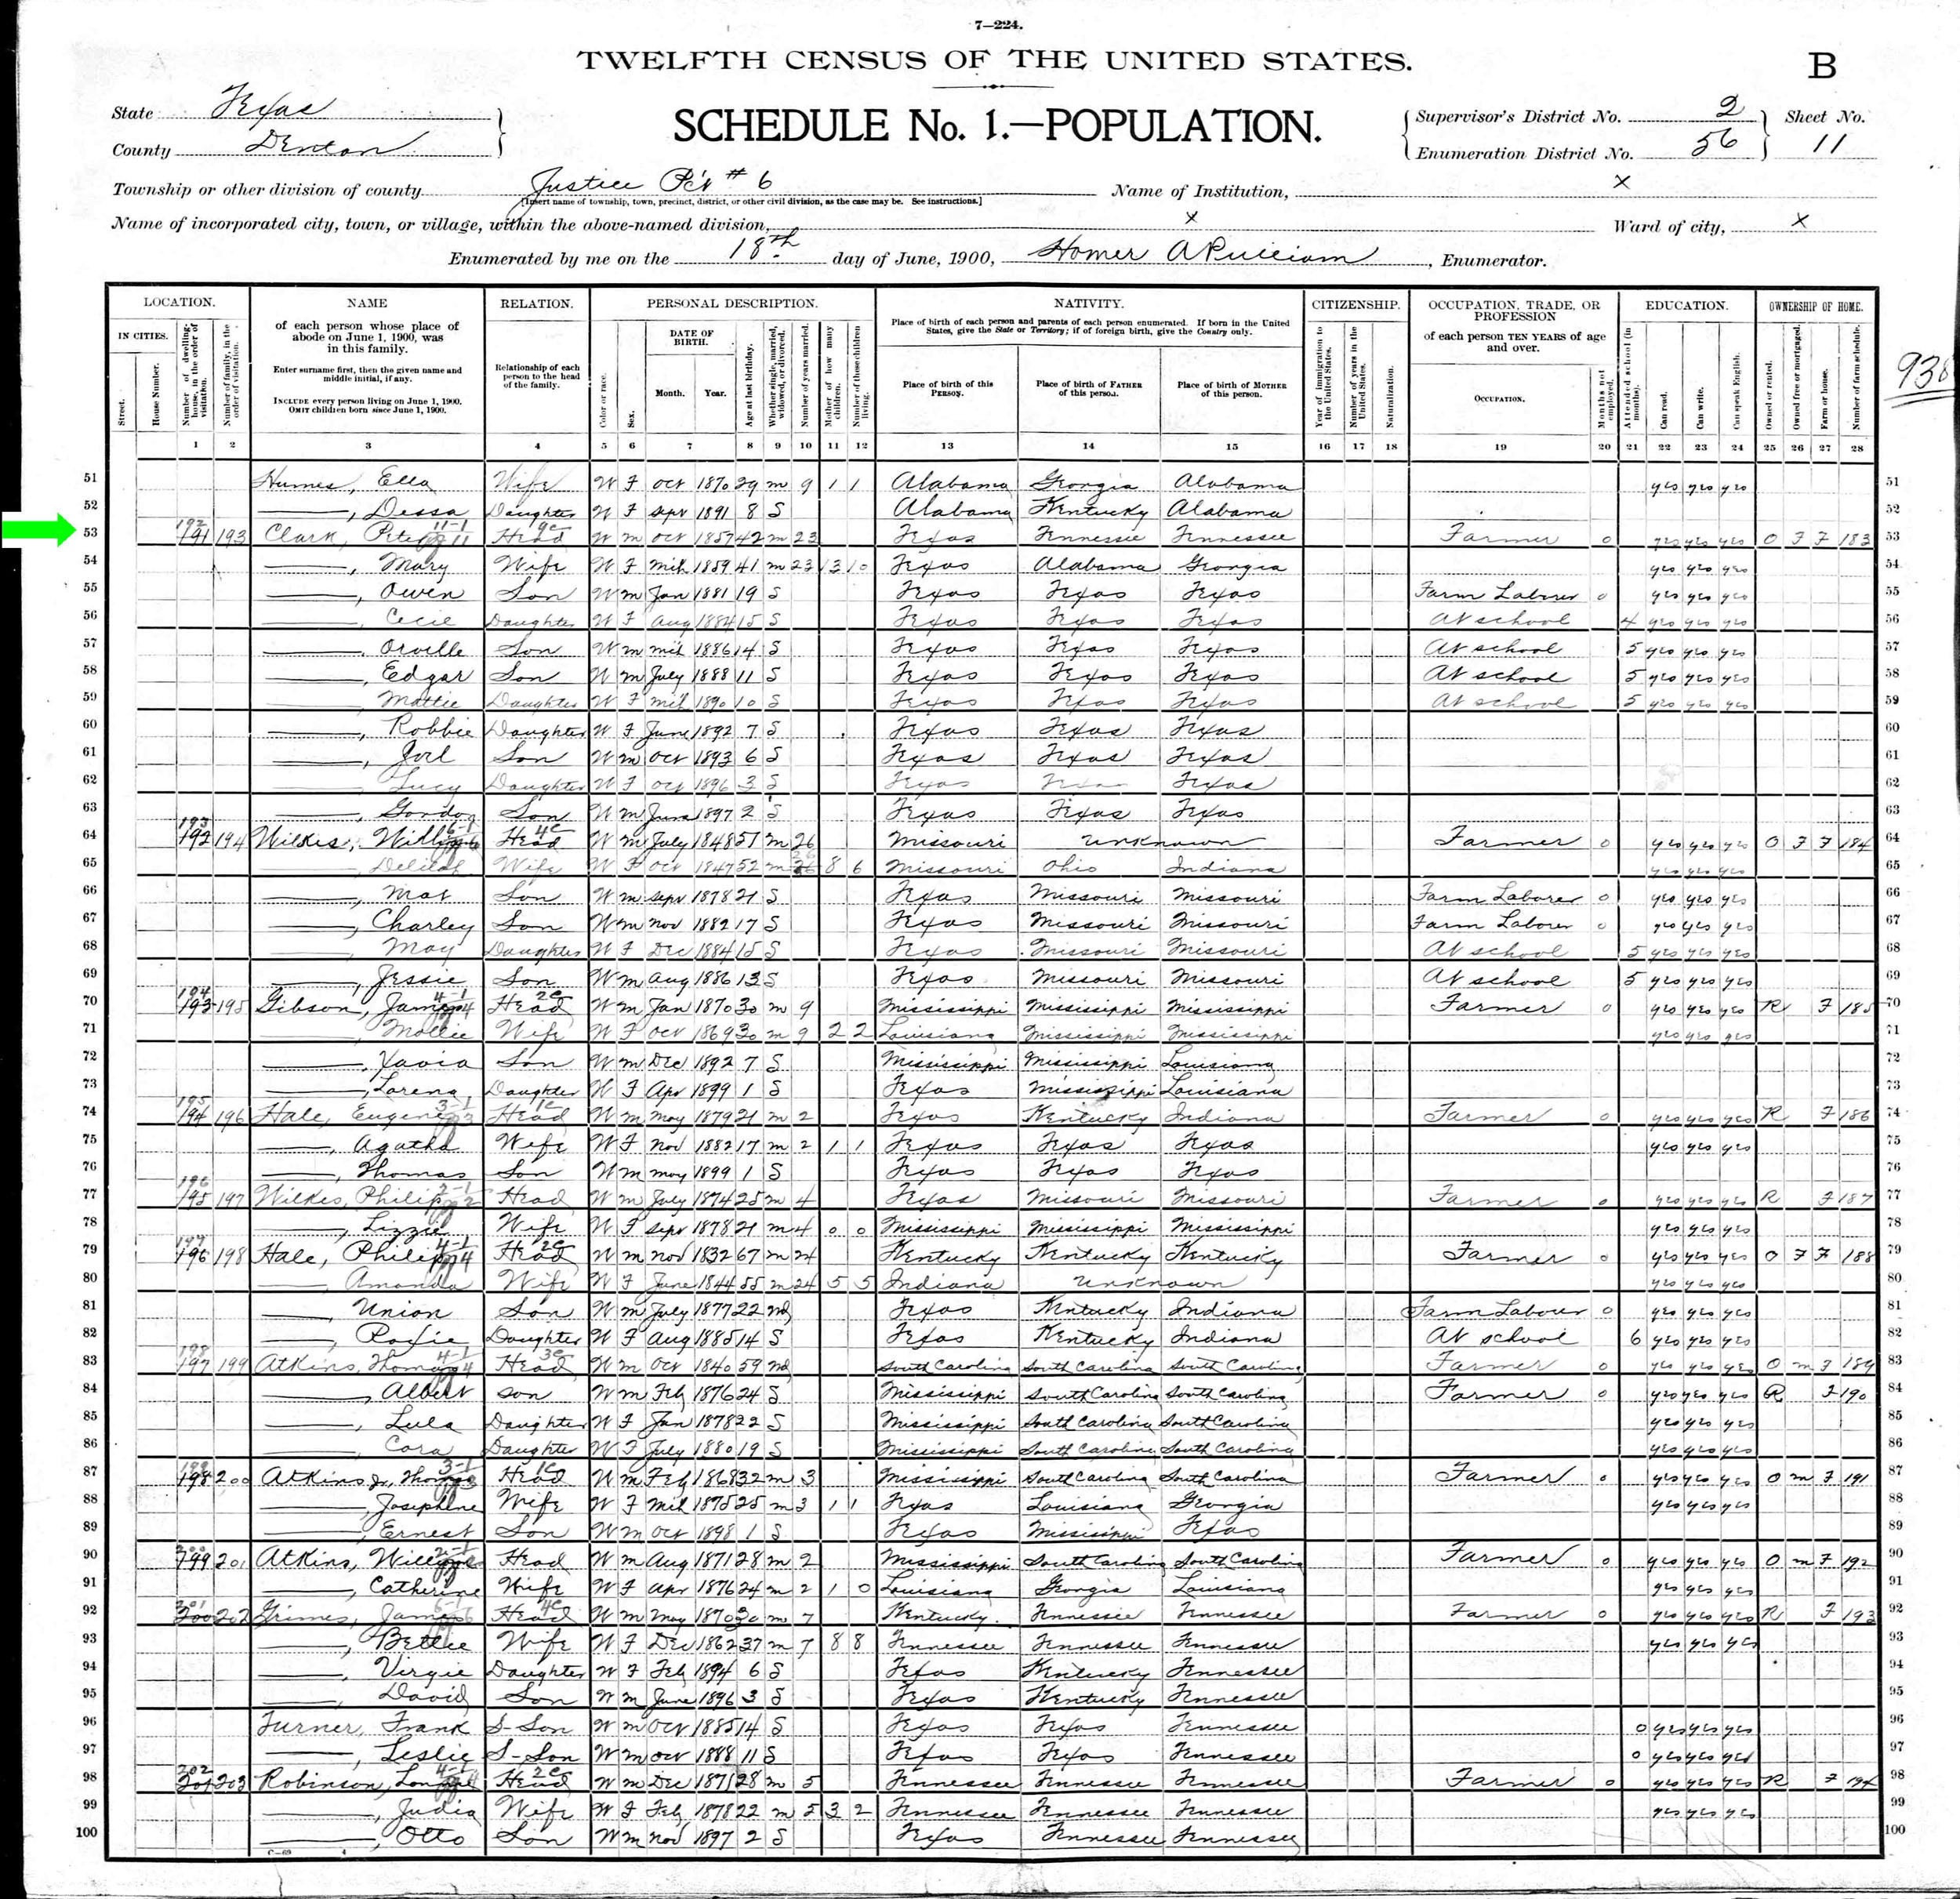 7—224.
TWELFTH CENSUS OF THE UNITED STATES.
B
State Texas
County Denton
SCHEDULE No. 1.—POPULATION.
Supervisor's District No. 2
Enumeration District No. 56
Sheet No.
11
Township or other division of county Justice Pc't # 6
[Insert name of township, town, precinct, district, or other civil division, as the case may be. See instructions.]
Name of Institution, X
Name of incorporated city, town, or village, within the above-named division, X
Ward of city, X
Enumerated by me on the 18th day of June, 1900, Homer A Pulliam, Enumerator.
938
LOCATION. NAME RELATION. PERSONAL DESCRIPTION. NATIVITY. CITIZENSHIP. OCCUPATION, TRADE, OR PROFESSION EDUCATION. OWNERSHIP OF HOME.
IN CITIES. Street. House Number. Number of dwelling-house, in the order of visitation. Number of family, in the order of visitation.
of each person whose place of abode on June 1, 1900, was in this family.
Enter surname first, then the given name and middle initial, if any.
INCLUDE every person living on June 1, 1900. OMIT children born since June 1, 1900.
Relationship of each person to the head of the family.
Color or race. Sex. DATE OF BIRTH. Month. Year. Age at last birthday. Whether single, married, widowed, or divorced. Number of years married. Mother of how many children. Number of these children living.
Place of birth of each person and parents of each person enumerated. If born in the United States, give the State or Territory; if of foreign birth, give the Country only.
Place of birth of this PERSON. Place of birth of FATHER of this person. Place of birth of MOTHER of this person.
Year of immigration to the United States. Number of years in the United States. Naturalization.
of each person TEN YEARS of age and over.
OCCUPATION. Months not employed.
Attended school (in months). Can read. Can write. Can speak English.
Owned or rented. Owned free or mortgaged. Farm or house. Number of farm schedule.
1 2 3 4 5 6 7 8 9 10 11 12 13 14 15 16 17 18 19 20 21 22 23 24 25 26 27 28
51 Humes, Ella Wife W F Oct 1870 29 m 9 1 1 Alabama Georgia Alabama yes yes yes 51
52 ——, Dessa Daughter W F Sept 1891 8 S Alabama Kentucky Alabama 52
53 192 191 193 Clark, Peter 11-1 Head 9c W m Oct 1857 42 m 23 Texas Tennessee Tennessee Farmer 0 yes yes yes O F F 183 53
54 ——, Mary Wife W F Mch 1859 41 m 23 13 10 Texas Alabama Georgia yes yes yes 54
55 ——, Owen Son W m Jan 1881 19 S Texas Texas Texas Farm Laborer 0 yes yes yes 55
56 ——, Cecie Daughter W F Aug 1884 15 S Texas Texas Texas At school 4 yes yes yes 56
57 ——, Orville Son W m Mch 1886 14 S Texas Texas Texas At school 5 yes yes yes 57
58 ——, Edgar Son W m July 1888 11 S Texas Texas Texas At school 5 yes yes yes 58
59 ——, Mattie Daughter W F Mch 1890 10 S Texas Texas Texas At school 5 yes yes yes 59
60 ——, Robbie Daughter W F June 1892 7 S Texas Texas Texas 60
61 ——, Joel Son W m Oct 1893 6 S Texas Texas Texas 61
62 ——, Lucy Daughter W F Oct 1896 3 S Texas Texas Texas 62
63 ——, Gordon Son W m June 1897 2 S Texas Texas Texas 63
64 193 192 194 Wilkes, 6-1 Head 4c W m July 1848 51 m 26 Missouri Unknown Farmer 0 yes yes yes O F F 184 64
65 ——, Delilah Wife W F Oct 1847 52 m 26 8 6 Missouri Ohio Indiana yes yes yes 65
66 ——, Mat Son W m Sept 1878 21 S Texas Missouri Missouri Farm Laborer 0 yes yes yes 66
67 ——, Charley Son W m Nov 1882 17 S Texas Missouri Missouri Farm Laborer 0 yes yes yes 67
68 ——, May Daughter W F Dec 1884 15 S Texas Missouri Missouri At school 5 yes yes yes 68
69 ——, Jessie Son W m Aug 1886 13 S Texas Missouri Missouri At school 5 yes yes yes 69
70 194 193 195 Gibson, James 4-1 Head 2c W m Jan 1870 30 m 9 Mississippi Mississippi Mississippi Farmer 0 yes yes yes R F 185 70
71 ——, Mollie Wife W F Oct 1869 30 m 9 2 2 Louisiana Mississippi Mississippi yes yes yes 71
72 ——, Son W m Dec 1892 7 S Mississippi Mississippi Louisiana 72
73 ——, Lorena Daughter W F Apr 1899 1 S Texas Mississippi Louisiana 73
74 195 194 196 Hale, Eugene 3-1 Head 1c W m May 1879 21 m 2 Texas Kentucky Indiana Farmer 0 yes yes yes R F 186 74
75 ——, Agatha Wife W F Nov 1882 17 m 2 1 1 Texas Texas Texas yes yes yes 75
76 ——, Thomas Son W m May 1899 1 S Texas Texas Texas 76
77 196 195 197 Wilkes, Philip 2-1 Head W m July 1874 25 m 4 Texas Missouri Missouri Farmer 0 yes yes yes R F 187 77
78 ——, Lizzie Wife W F Sept 1878 21 m 4 0 0 Mississippi Mississippi Mississippi yes yes yes 78
79 197 196 198 Hale, Philip 4-1 Head 2c W m Nov 1832 67 m 24 Kentucky Kentucky Kentucky Farmer 0 yes yes yes O F F 188 79
80 ——, Amanda Wife W F June 1844 55 m 24 5 5 Indiana Unknown yes yes yes 80
81 ——, Union Son W m July 1877 22 wd Texas Kentucky Indiana Farm Laborer 0 yes yes yes 81
82 ——, Roxie Daughter W F Aug 1885 14 S Texas Kentucky Indiana At school 6 yes yes yes 82
83 198 197 199 Atkins, Thomas 4-1 Head 3c W m Oct 1840 59 wd South Carolina South Carolina South Carolina Farmer 0 yes yes yes O m F 189 83
84 ——, Albert Son W m Feb 1876 24 S Mississippi South Carolina South Carolina Farmer 0 yes yes yes R F 190 84
85 ——, Lula Daughter W F Jan 1878 22 S Mississippi South Carolina South Carolina yes yes yes 85
86 ——, Cora Daughter W F July 1880 19 S Mississippi South Carolina South Carolina yes yes yes 86
87 199 198 200 Atkins Jr, Thomas 3-1 Head 1c W m Feb 1868 32 m 3 Mississippi South Carolina South Carolina Farmer 0 yes yes yes O m F 191 87
88 ——, Josephine Wife W F Mch 1875 25 m 3 1 1 Texas Louisiana Georgia yes yes yes 88
89 ——, Ernest Son W m Oct 1898 1 S Texas Mississippi Texas 89
90 200 199 201 Atkins, 2-1 Head W m Aug 1871 28 m 2 Mississippi South Carolina South Carolina Farmer 0 yes yes yes O m F 192 90
91 ——, Catherine Wife W F Apr 1876 24 m 2 1 0 Louisiana Georgia Louisiana yes yes yes 91
92 201 200 202 Grimes, James 6-1 Head 4c W m May 1870 30 m 7 Kentucky Tennessee Tennessee Farmer 0 yes yes yes R F 193 92
93 ——, Bettie Wife W F Dec 1862 37 m 7 8 8 Tennessee Tennessee Tennessee yes yes yes 93
94 ——, Virgie Daughter W F Feb 1894 6 S Texas Kentucky Tennessee 94
95 ——, David Son W m June 1896 3 S Texas Kentucky Tennessee 95
96 Turner, Frank S-Son W m Oct 1885 14 S Texas Texas Tennessee 0 yes yes yes 96
97 ——, Leslie S-Son W m Oct 1888 11 S Texas Texas Tennessee 0 yes yes yes 97
98 202 201 203 Robinson, 4-1 Head 2c W m Dec 1871 28 m 5 Tennessee Tennessee Tennessee Farmer 0 yes yes yes R F 194 98
99 ——, Judia Wife W F Feb 1878 22 m 5 3 2 Tennessee Tennessee Tennessee yes yes yes 99
100 ——, Otto Son W m Nov 1897 2 S Texas Tennessee Tennessee 100